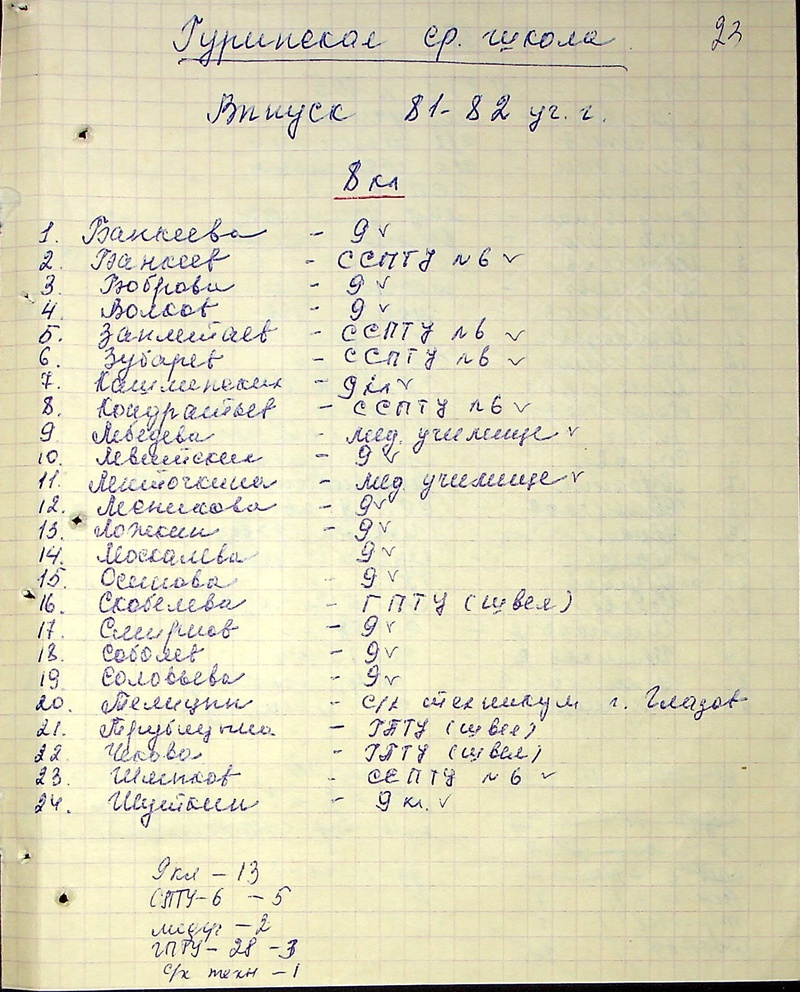 Гуринская ср. школа 23
Выпуск 81-82 уч. г.
8 кл
1. Банкеева - 9 ✓
2. Банкеев - ССПТУ №6 ✓
3. Боброва - 9 ✓
4. Волков - 9 ✓
5. - ССПТУ №6 ✓
6. Зубарев - ССПТУ №6 ✓
7. - 9 кл ✓
8. Кондратьев - ССПТУ №6 ✓
9 Лебедева - мед. училище ✓
10. - 9 ✓
11. - мед. училище ✓
12. Лесникова - 9 ✓
13. Ложкин - 9 ✓
14. Москалева 9 ✓
15. Осипова - 9 ✓
16. Скобелева - ГПТУ (швея)
17. Смирнов - 9 ✓
18. Соболев - 9 ✓
19 Соловьева - 9 ✓
20. Телицин - с/х техникум г. Глазов
21. Трубицына - ГПТУ (швея)
22 Чехова - ГПТУ (швея)
23 - ССПТУ №6 ✓
24. - 9 кл. ✓
9 кл - 13
СПТУ-6 - 5
медуч - 2
ГПТУ-28 - 3
с/х техн - 1